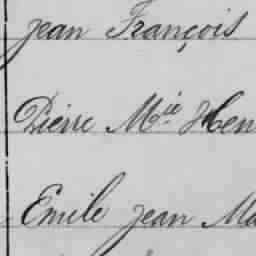 jean François
Pierre Mie Hen
Emile jean Ma